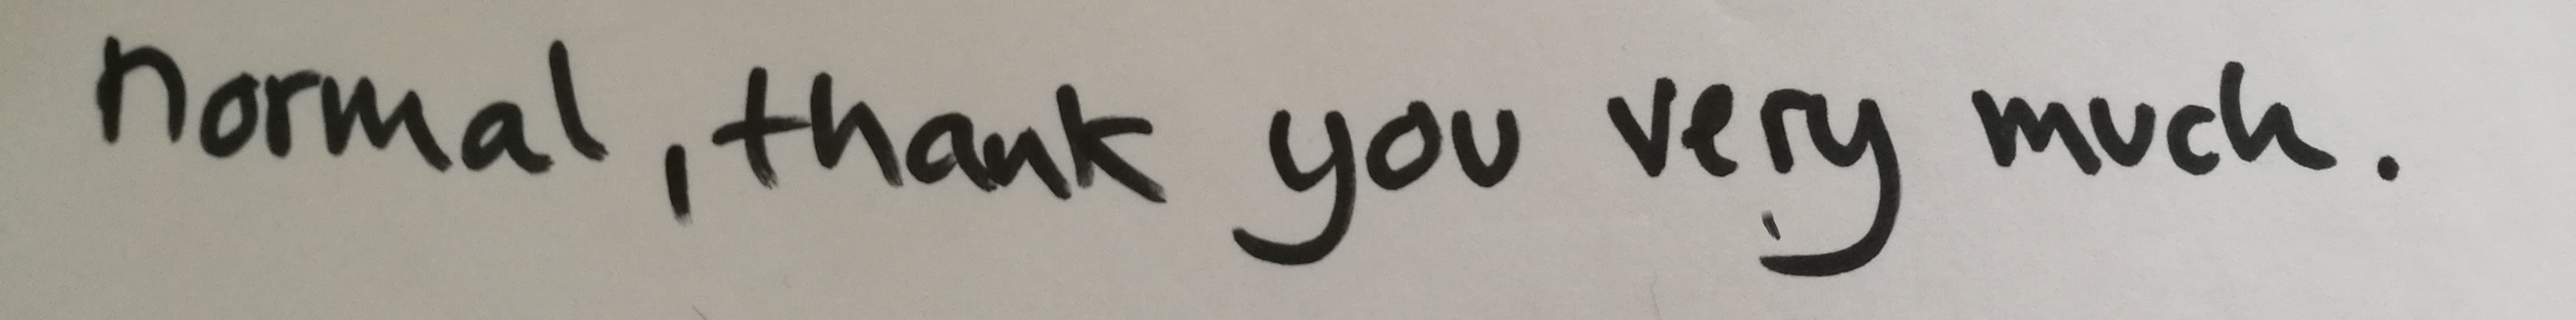 normal, thank you very much.